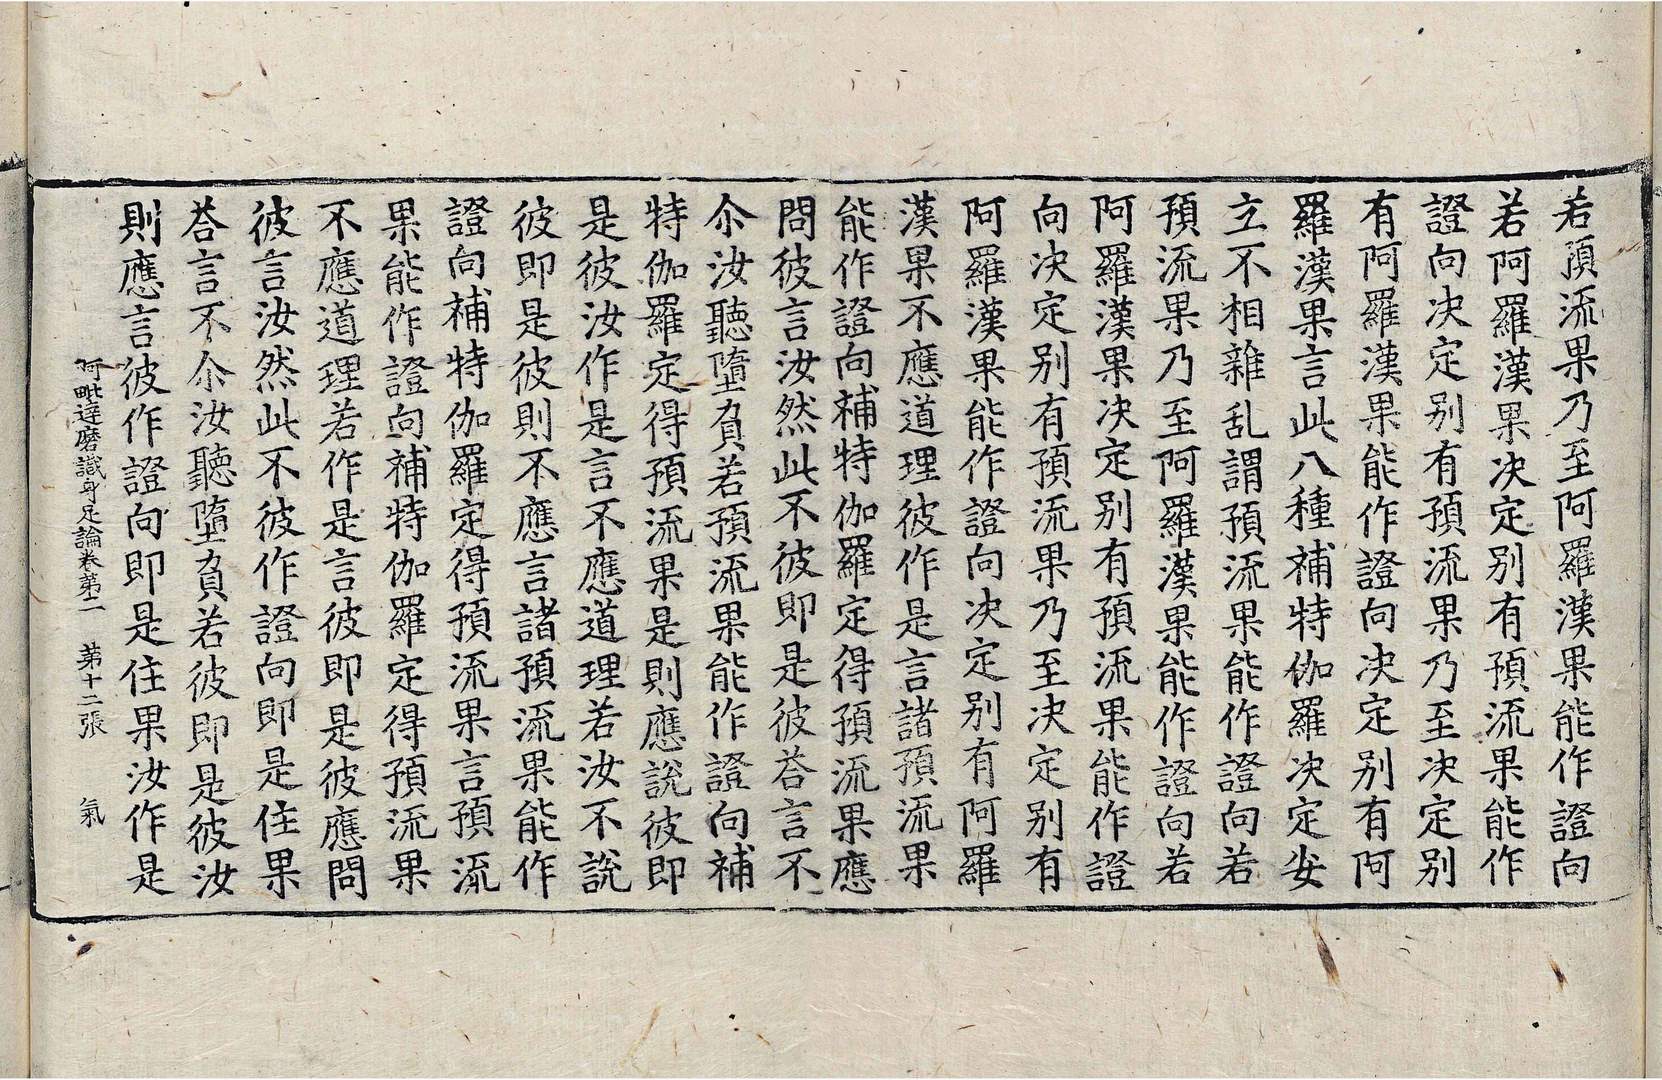 若預流果乃至阿羅漢果能作證向
若阿羅漢果決定别有預流果能作
證向決定别有預流果乃至決定别
有阿羅漢果能作證向決定别有阿
羅漢果言此八種補特伽羅決定安
立不相雜乱謂預流果能作證向若
預流果乃至阿羅漢果能作證向若
阿羅漢果決定别有預流果能作證
向決定别有預流果乃至決定别有
阿羅漢果能作證向決定别有阿羅
漢果不應道理彼作是言諸預流果
能作證向補特伽羅定得預流果應
問彼言汝然此不彼即是彼荅言不
尒汝聽墮負若預流果能作證向補
特伽羅定得預流果是則應說彼即
是彼汝作是言不應道理若汝不說
彼即是彼則不應言諸預流果能作
證向補特伽羅定得預流果言預流
果能作證向補特伽羅定得預流果
不應道理若作是言彼即是彼應問
彼言汝然此不彼作證向即是住果
荅言不尒汝聽墮負若彼即是彼汝
則應言彼作證向即是住果汝作是
阿毗達磨識身足論卷第二 第十二張 氣